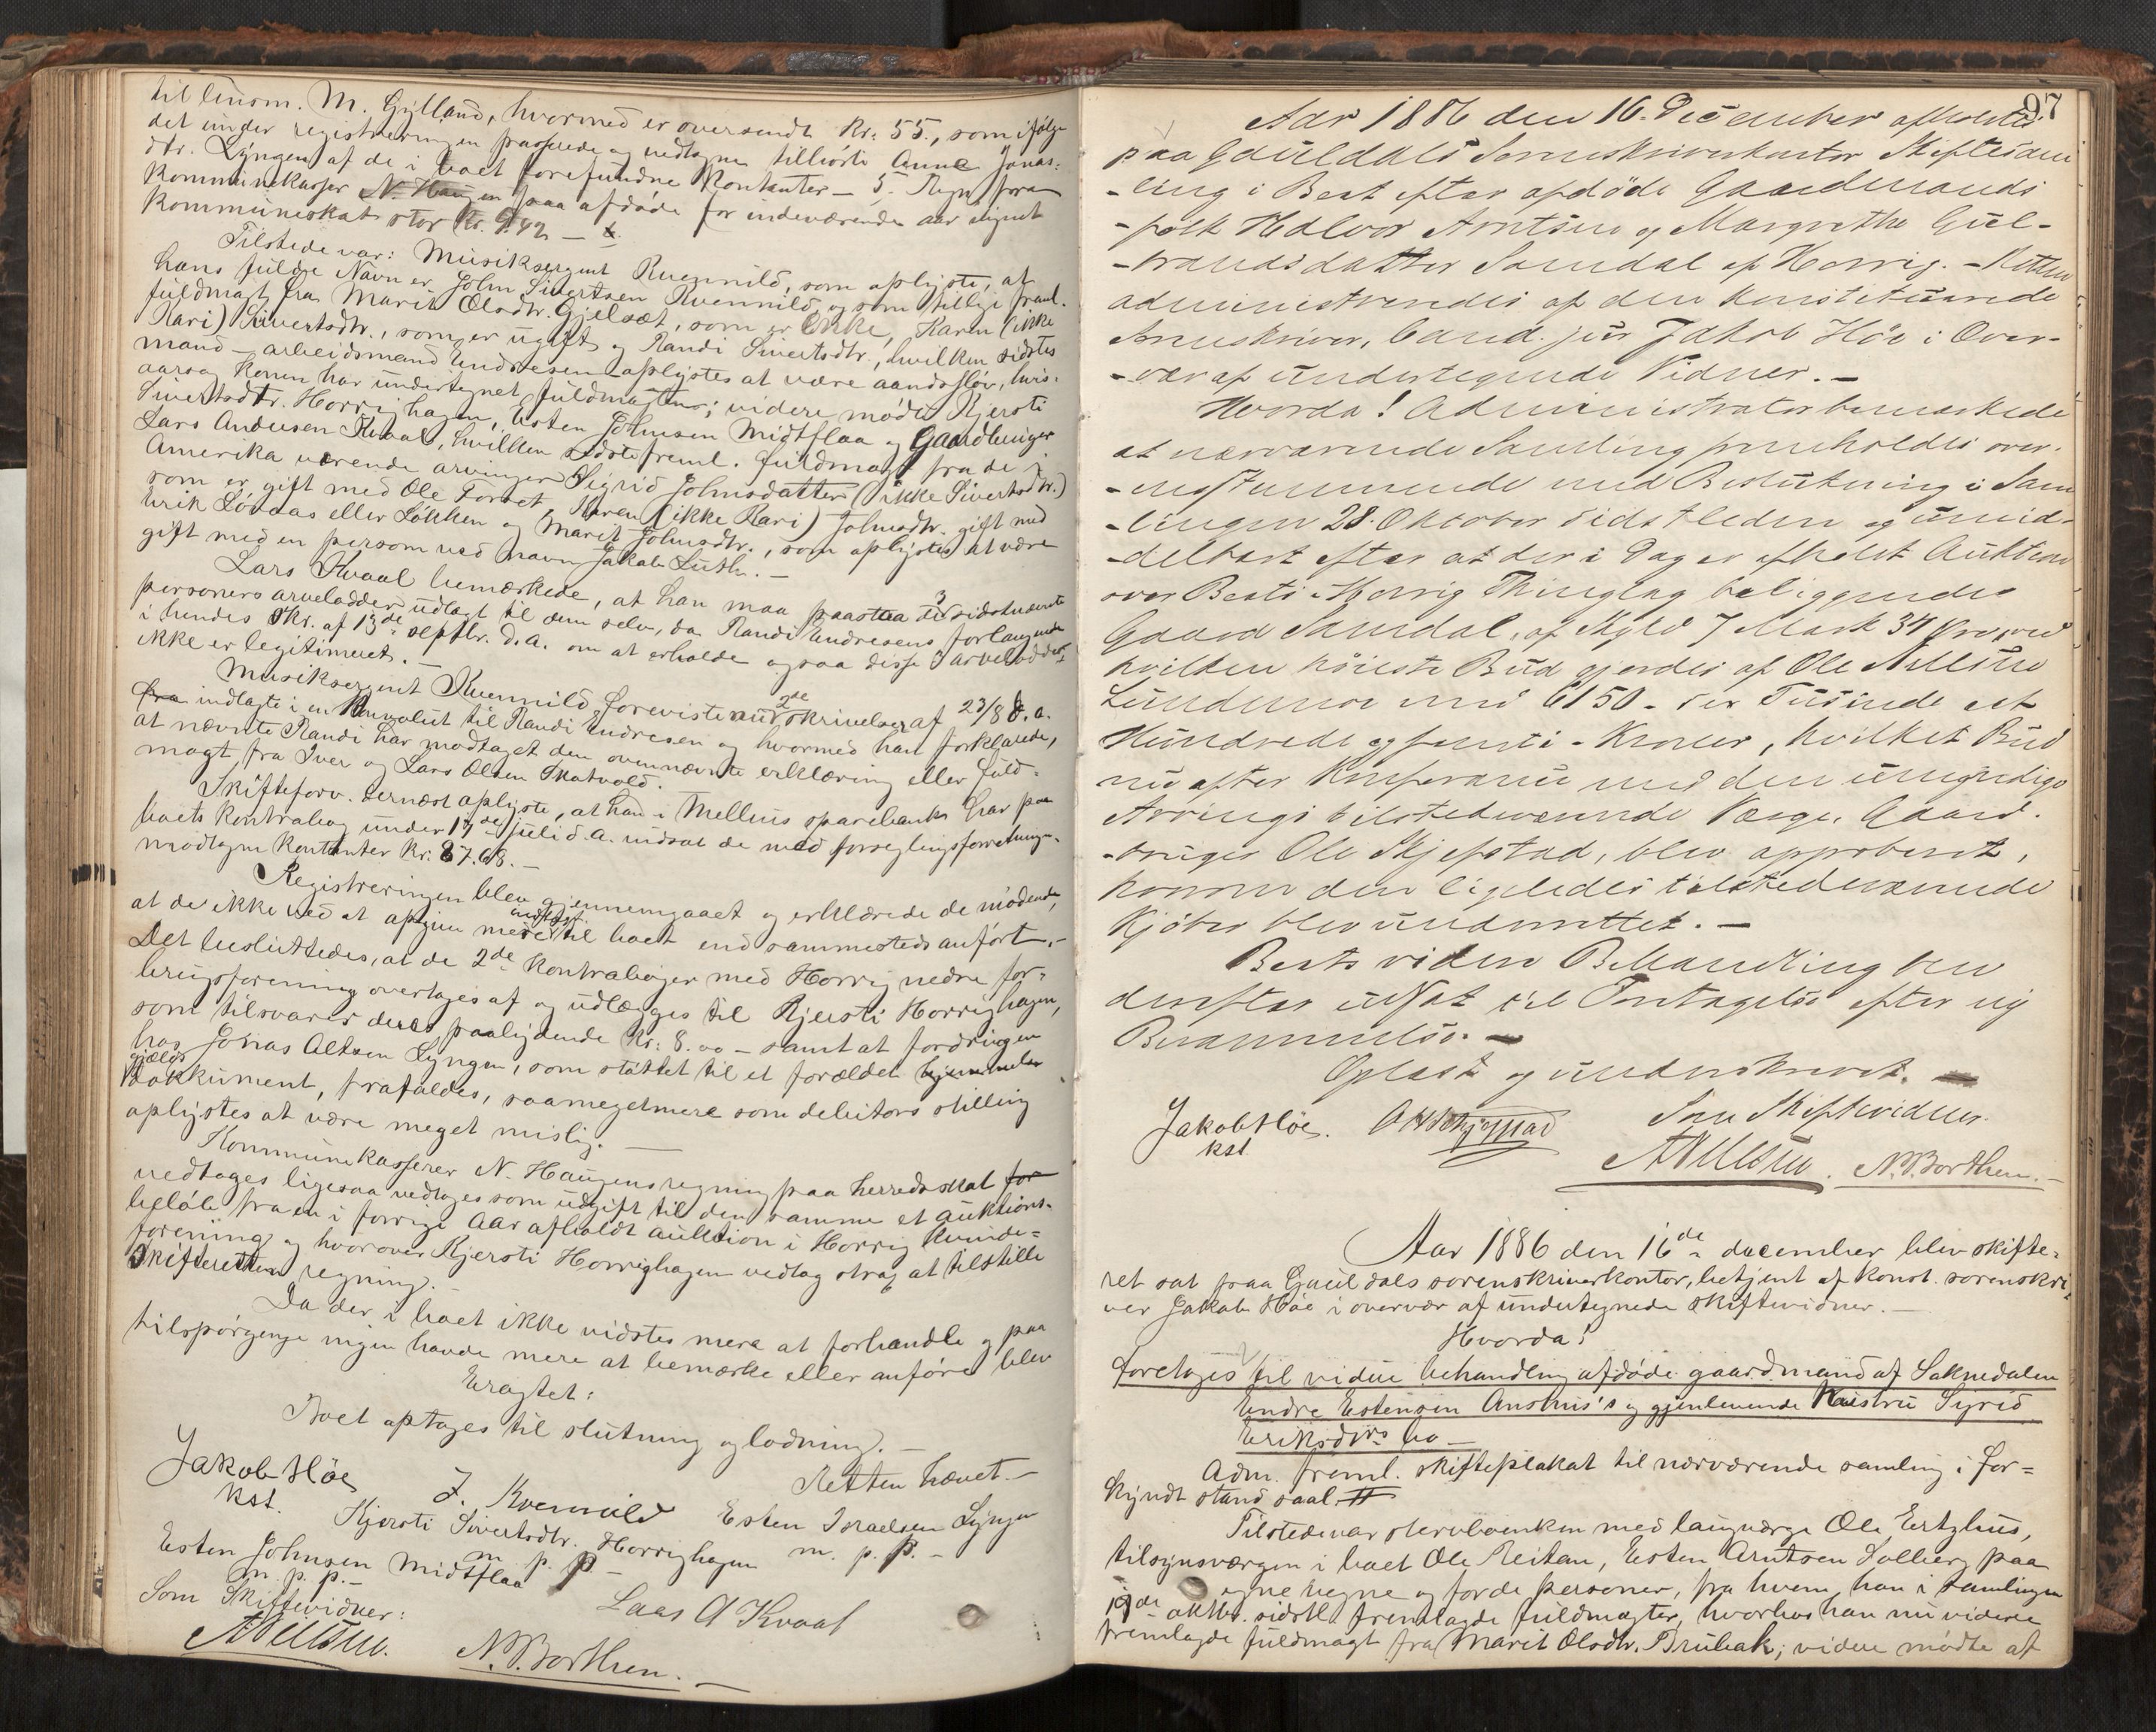 til lensm. M. Gylland, hvormed er oversendt Kr. 55., som ifølge
det under registreringen passerede og vedtagne tilhörte Anne Jonas-
dtr. Lyngen af de i boet forefundne Kontanter – 5. Regn. fra
Kommunekasser N. Haugen paa afdöde for indeværende aar lignet
Kommuneskat stor Kr. 9.42 –
Tilstede var: Musiksergent Kvernmild, som oplyste, at
hans fulde Navn er John Sivertsen Kvernmild, og som tillige freml.
fuldmagt fra Marit Olsdtr. Gjelsæt, som er Enke, Karen (ikke
Kari) Sivertsdtr., som er ugift og Randi Sivertsdtr., hvilken sidstes
mand – arbeidsmand Endresen – oplystes at være aandsslöv, hvis-
aarsag konen har undertegnet fuldmagten; videre mödte Kjersti
Sivertsdtr. Horrighagen, Esten Johnsen Midtflaa og Gaardbruger
Lars Andersen Kvaal, hvilken sidste freml. fuldmagt fra de i
Amerika værende arvinger Sigrid Johnsdatter (ikke Sivertsdtr.)
som er gift med Ole Forset, Karen (ikke Kari) Johnsdtr. gift med
Erik Lövaas eller Løkken og Marit Johnsdtr., som oplystes at være
gift med en person ved navn Jakob Luth. –
Lars Kvaal bemærkede, at han maa paastaa de 3 sidstnævnte
personers arvelodder udlagt til dem selv, da Randi Endresens forlangende
i hendes Skr. af 13de septbr. d.a. om at erholde ogsaa disse 3 arvelodder
ikke er legitimeret. –
Musiksergent Kvernmild foreviste 2de skrivelser af 23/8 d.a.
fra indlagte i en Konvolut til Randi Endresen og hvormed han forklarede,
at nævnte Randi har modtaget den ovennævnte erklæring eller fuld-
magt fra Iver og Lars Olsen Skatvold.
Skifteforv. dernæst oplyste, at han i Melhus sparebank har paa
boets Kontrabog under 17de juli d.a. indsat de med forseglingsforretningen
modtagne Kontanter Kr. 87.68. –
Registreringen blev gjennemgaaet og erklærede de mödende,
at de ikke ved at opgive mere indtægt til boet end sammesteds anført. –
Det besluttedes, at de 2de Kontraböger med Horrig nedre for-
brugsforening overtages af og udlægges til Kjersti Horrighagen,
som tilsvarer deres paalydende Kr. 8.00 – samt at fordringen
hos Jonas Altsen Lyngen, som støttet til et forældet
gjælds Dokkument, frafaldes, saameget mere som debitors stilling
oplystes at være meget mislig. –
Kommunekasserer N. Haugens regning paa herredsskat for
vedtages ligesaa vedtages som udgift til den samme et auktions-
beløb fra en i forrige Aar afholdt auktion i Horrig Kvinde-
forening og hvorover Kjersti Horrighagen vedtog strax at tilstille
Skifteretten regning.
Da der i boet ikke vidstes mere at forhandle og paa
tilspörgende ingen havde mere at bemærke eller anföre blev
Eragtet:
Boet optages til slutning og lodning. –
Retten hævet. –
Jakob Höe
kst.
J. Kvernmild Esten Israelsen Lyngen
m. p. P. –
Kjersti Sivertsdtr. Horrighagen
m. p. p –
Esten Johnsen Midtflaa
m. p. p. –
Lars A Kvaal
Som Skiftevidner:
N. P. Borthen.
97
Aar 1886 den 16. December afholdtes
paa Gauldals Sorenskriverkontor Skiftesam
-ling i Boet efter afdöde Gaardmands
-folk Halvor Arntsen og Margrethe Gul-
-brandsdatter Samdal af Horrig. – Retten
administreredes af den konstituerede
Sorenskriver, Cand. jur Jakob Höe i Over-
-vær af undertegnede Vidner. –
Hvorda! Administrator bemærkede
at nærværende Samling foreholdes over-
-ensstemmende med Beslutning i Sam
-lingen 28. Oktober sidstleden og umid-
-delbart efter at der i Dag er afholdt Auktion
over Boets i Horrig Thinglag beliggende
Gaard Samdal, af Skyld 7 Mark 34 Öre, ved
hvilken höieste Bud gjordes af Ole
Lundemoe med 6150 – Sex Tusinde et
Hundrede og femti – Kroner, hvilket Bud
nu efter Konferance med den umyndige
Arvings tilstedeværende Værge, Gaard-
-bruger Ole Skjefstad, blev approberet,
hvorom den ligeledes tilstedeværende
Kjöber blev underrettet. –
Boets videre Behandling blev
derefter udsat til Foretagelse efter ny
Berammelse. –
Oplæst og underskrevet. –
Jakob Höe.
kst
Som Skiftevidner.
N. P. Borthen. –
Aar 1886 den 16de december blev skifte-
ret sat paa Gauldals sorenskriverkontor, betjent af konst. sorenskri-
ver Jakob Höe i overvær af undertegnede skiftevidner. –
Hvorda!
foretoges til videre behandling afdöde gaardmand af Soknedalen
Endre Estensen Anshus's og gjenlevende Kaistru Sigrid
Eriksdtrs bo –
Adm. freml. skifteplakat til nærværende samling i for-
kyndt stand saal.
Tilstede var stervboenken med laugværge Ole Ertzhus,
tilsynsværgen i boet Ole Reitan, Esten Arntsen Solberg paa
egne vegne og for de personer, fra hvem han i samlingen
19de oktbr. sidstl. fremlagde fuldmagter, hvorhos han nu videre
fremlagde fuldmagt fra Marit Olsdtr. Brubak; videre mödte af